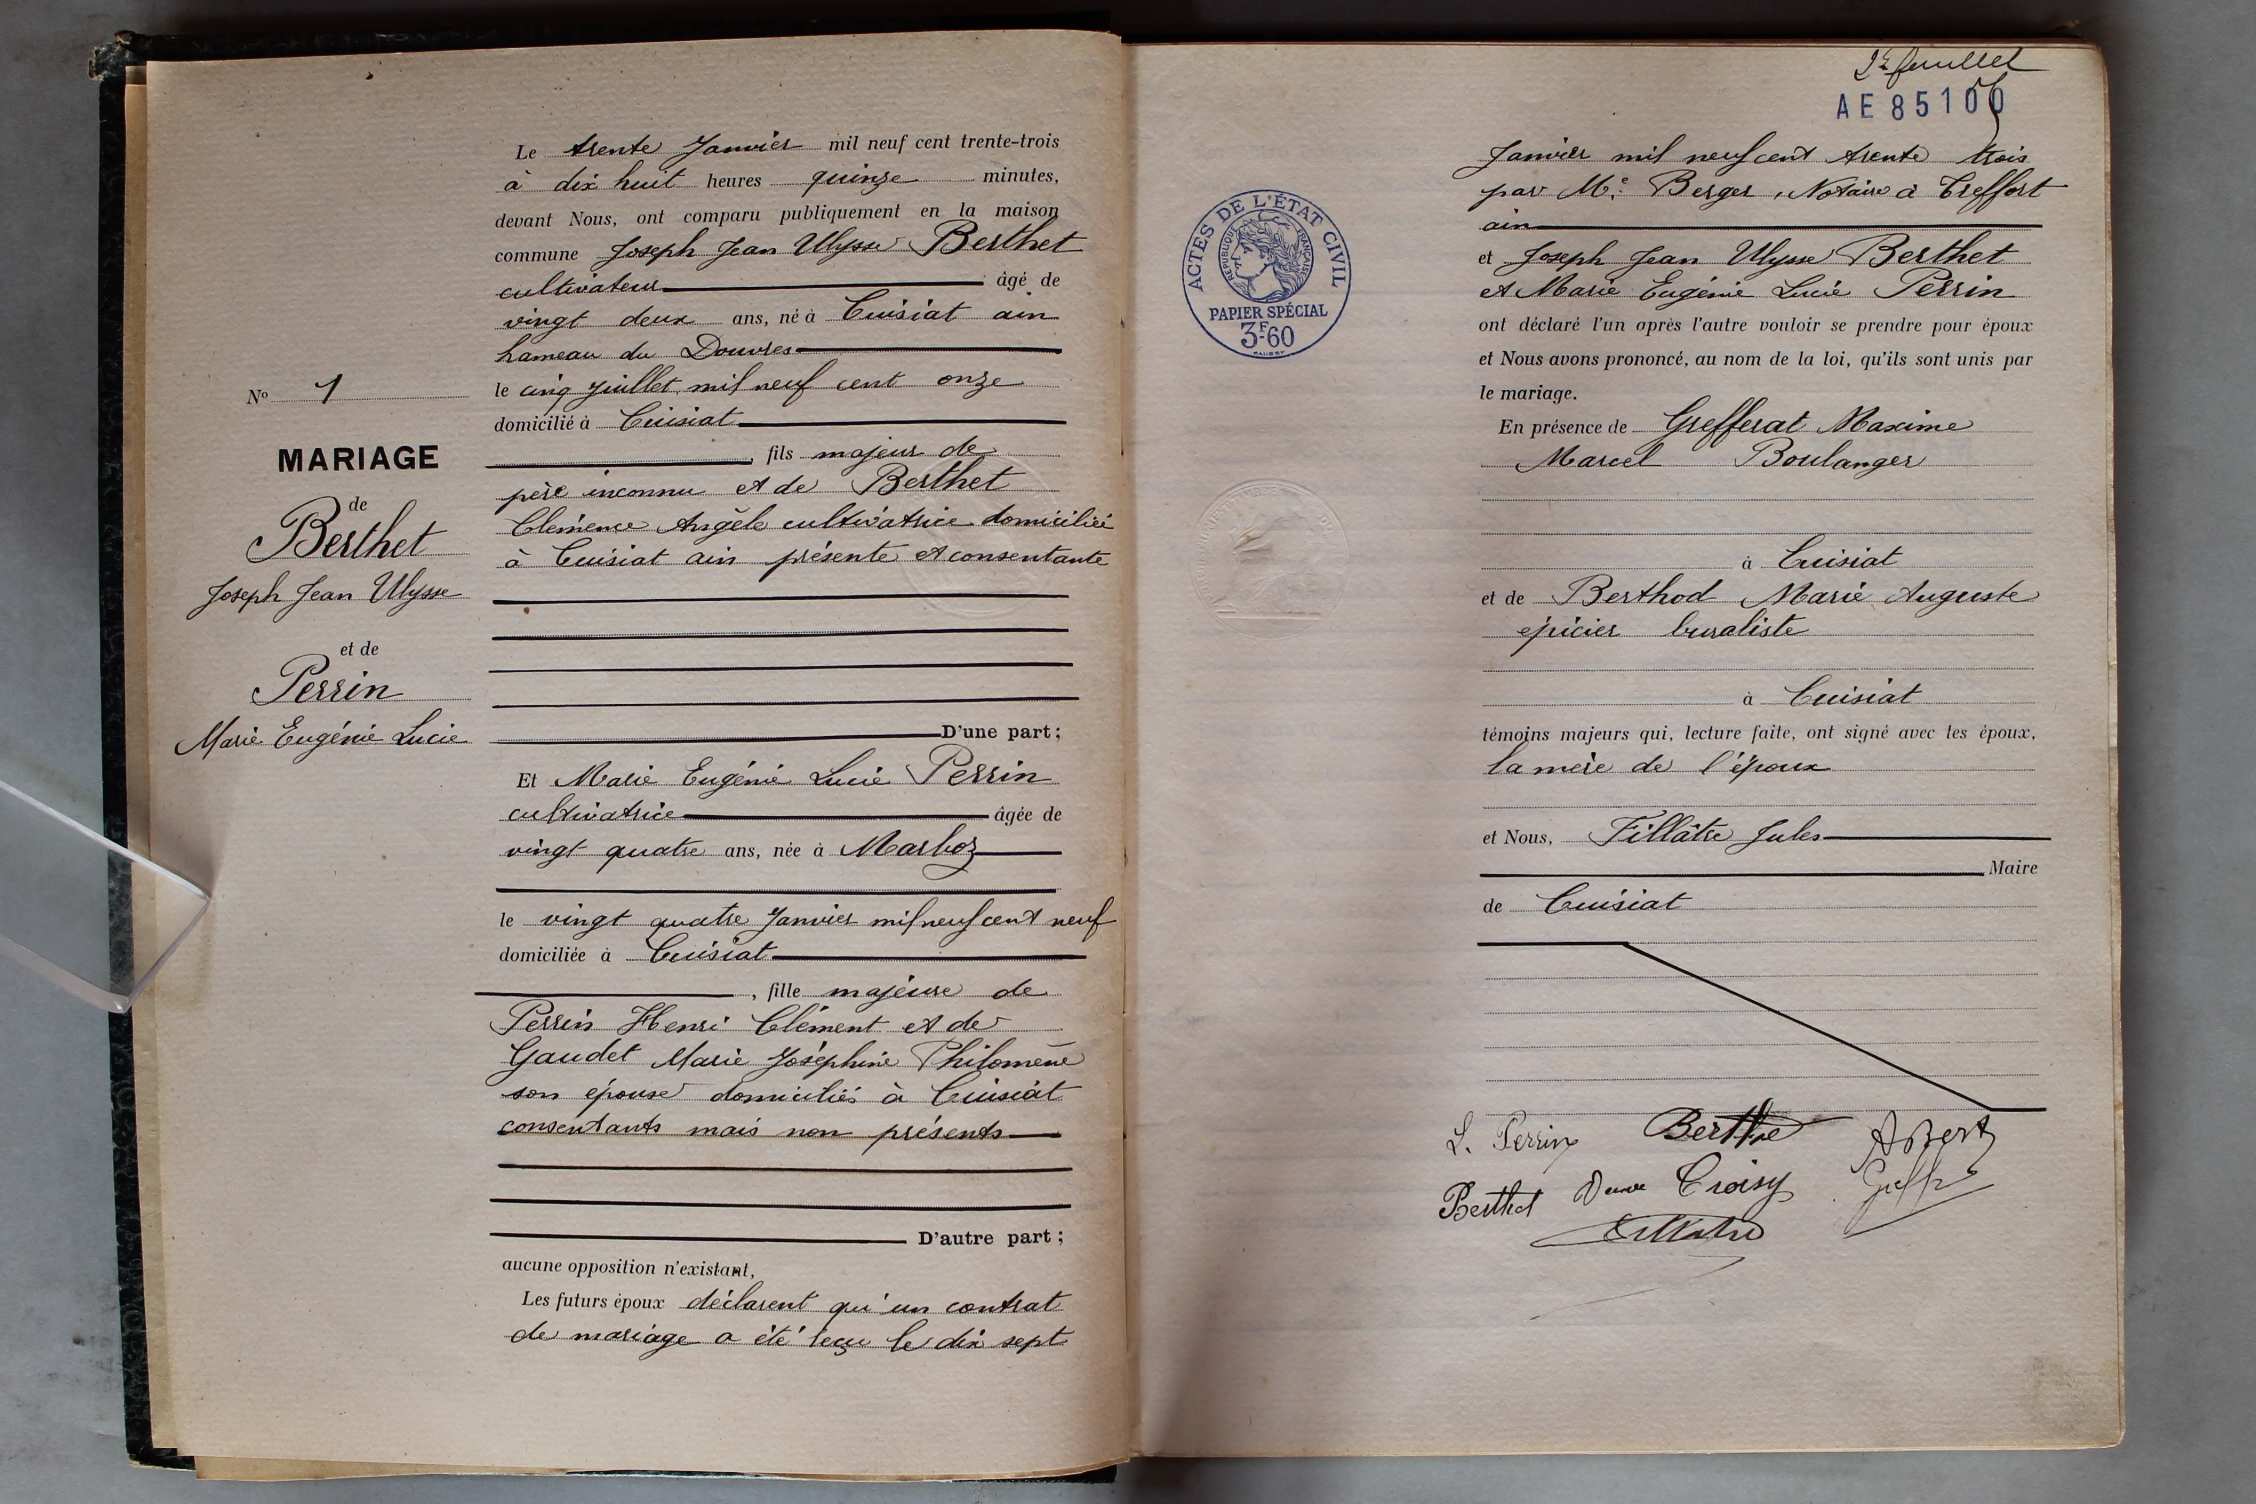 Le trente Janvier mil neuf cent trente-trois
à dix huit heures quinze minutes,
devant Nous, ont comparu publiquement en la maison
commune Joseph Jean Ulysse Berthet
cultivateur âgé de
vingt deux ans, né à Cuisiat ain
hameau du Douvres
le cinq Juillet mil neuf cent onze
domicilié à Cuisiat
, fils majeur de
père inconnu et de Berthet
Clémence Angèle cultivatrice domiciliée
à Cuisiat ain présente et consentante
D'une part ;
Et Marie Eugénie Lucie Perrin
cultivatrice âgée de
vingt quatre ans, née à Marboz
le vingt quatre Janvier mil neuf cent neuf
domiciliée à Cuisiat
, fille majeure de
Perrin Henri Clément et de
Gaudet Marie Joséphine Philomène
son épouse domiciliés à Cuisiat
consentants mais non présents
D'autre part ;
aucune opposition n'existant,
Les futurs époux déclarent qu'un contrat
de mariage a été reçu le dix sept
No 1
MARIAGE
de
Berthet
Joseph Jean Ulysse
et de
Perrin
Marie Eugénie Lucie
2e feuillet
AE 85100
Janvier mil neuf cent trente trois
par Me Berger, Notaire à Treffort
ain
et Joseph Jean Ulysse Berthet
et Marie Eugénie Lucie Perrin
ont déclaré l'un après l'autre vouloir se prendre pour époux
et Nous avons prononcé, au nom de la loi, qu'ils sont unis par
le mariage.
En présence de Grefferat Maxime
Marcel Boulanger
à Cuisiat
et de Berthod Marie Auguste
épicier buraliste
à Cuisiat
témoins majeurs qui, lecture faite, ont signé avec les époux,
la mère de l'époux
et Nous, Fillâtre Jules
Maire
de Cuisiat
L. Perrin Berthet
Berthet Croisy
ACTES DE L'ÉTAT CIVIL
RÉPUBLIQUE FRANÇAISE
PAPIER SPÉCIAL
3F.60